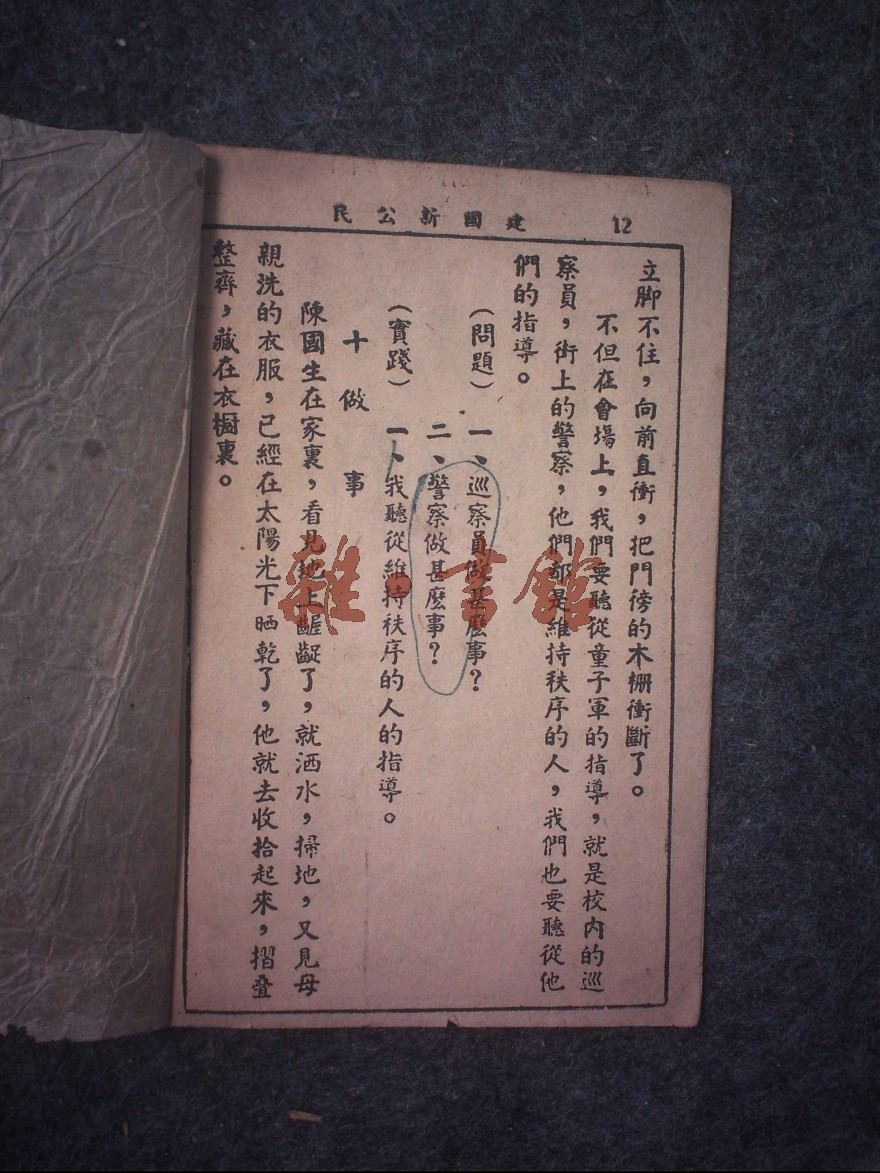 12
建國新公民
立脚不住，向前直衝，把門徬的木栅衝斷了。
不但在會塲上，我們要聽從童子軍的指導，就是校内的巡
察員，街上的警察，他們都是維持秩序的人，我們也要聽從他
們的指導。
（問題）一、巡察員做甚麽事？
二、警察做甚麽事？
（實踐）一、我聽從維持秩序的人的指導。
十 做 事
陳國生在家裏，看見地上齷齪了，就洒水，掃地，又見母
親洗的衣服，已經在太陽光下晒乾了，他就去收拾起來，摺叠
整齊，藏在衣櫥裏。
雜·書館